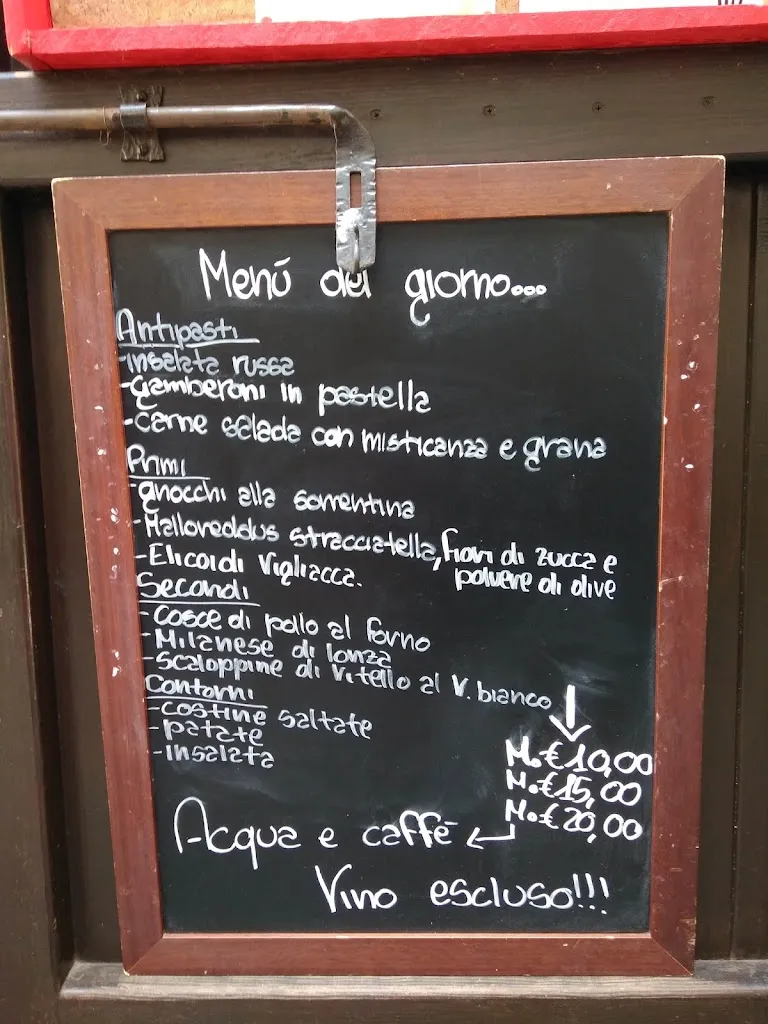 Menú del giorno...
Antipasti
-insalata russa
-Gamberoni in pastella
-carne salada con misticanza e grana
Primi
-gnocchi alla sorrentina
-Malloreddus stracciatella, fiori di zucca e
polvere di olive
-Elicoidi Vigliacca.
Secondi
-cosce di pollo al forno
-Milanese di lonza
-scaloppine di vitello al V. bianco
Contorni
-costine saltate
-patate
-insalata
M.€10,00
M.€15,00
M.€20,00
Acqua e caffē
Vino escluso!!!